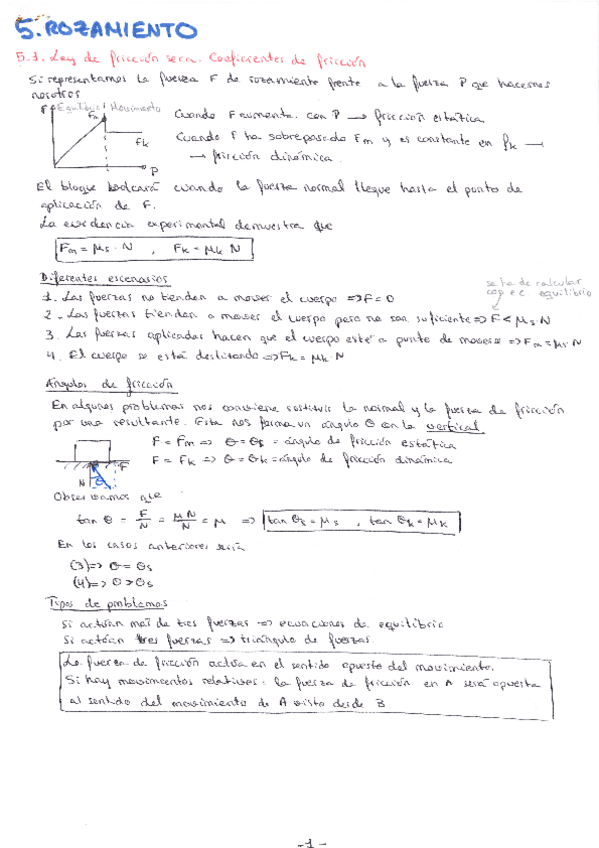 5. ROZAMIENTO
5.1. Ley de fricción seca. Coeficientes de fricción
Si representamos la fuerza F de rozamiento frente a la fuerza P que hacemos
nosotros
F Equilibrio Movimiento
Fm
Fk
P
Cuando F aumenta con P → fricción estática
Cuando F ha sobrepasado Fm y es constante en Fk →
→ fricción dinámica.
El bloque volcará cuando la fuerza normal llegue hasta el punto de
aplicación de F.
La evidencia experimental demuestra que
Fm = μs · N , Fk = μk N
Diferentes escenarios
1. Las fuerzas no tienden a mover el cuerpo => F = 0
se ha de calcular
con ec equilibrio
2. Las fuerzas tienden a mover el cuerpo pero no son suficiente => F < μs · N
3. Las fuerzas aplicadas hacen que el cuerpo esté a punto de moverse => Fm = μs · N
4. El cuerpo se está deslizando => Fk = μk · N
Ángulos de fricción
En algunos problemas nos conviene sustituir la normal y la fuerza de fricción
por una resultante. Esta nos forma un ángulo θ con la vertical
F = Fm => θ = θs = ángulo de fricción estática
F = Fk => θ = θk = ángulo de fricción dinámica
F
N θ
Observamos que
tan θ = F/N = μN/N = μ => tan θs = μs , tan θk = μk
En los casos anteriores sería
(3) => θ = θs
(4) => θ > θs
Tipos de problemas
Si actúan más de tres fuerzas => ecuaciones de equilibrio
Si actúan tres fuerzas => triángulo de fuerzas.
La fuerza de fricción actúa en el sentido opuesto del movimiento.
Si hay movimientos relativos: la fuerza de fricción en A será opuesta
al sentido del movimiento de A visto desde B
-1-